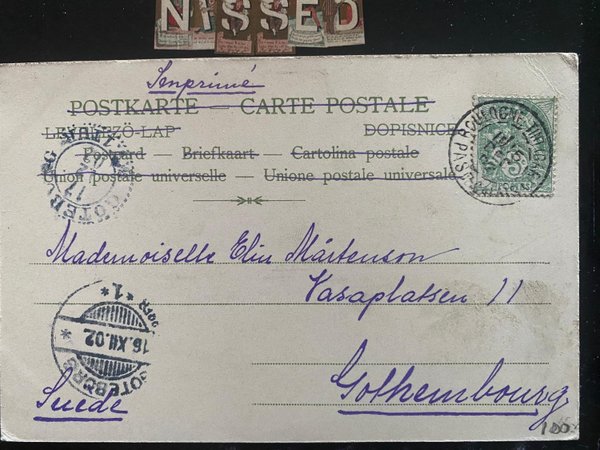 NISSED
Imprimé
POSTKARTE — CARTE POSTALE
LEVELEZÖ-LAP DOPISNICE
Postcard — Briefkaart — Cartolina postale
Union postale universelle — Unione postale universale
GÖTEBORG
17
BOULOGNE
PAS
5
Mademoiselle Elin Mårtenson
Vasaplatsen 11
*1*
16.XII.02
GÖTEBORG
Gothembourg
Suède
100